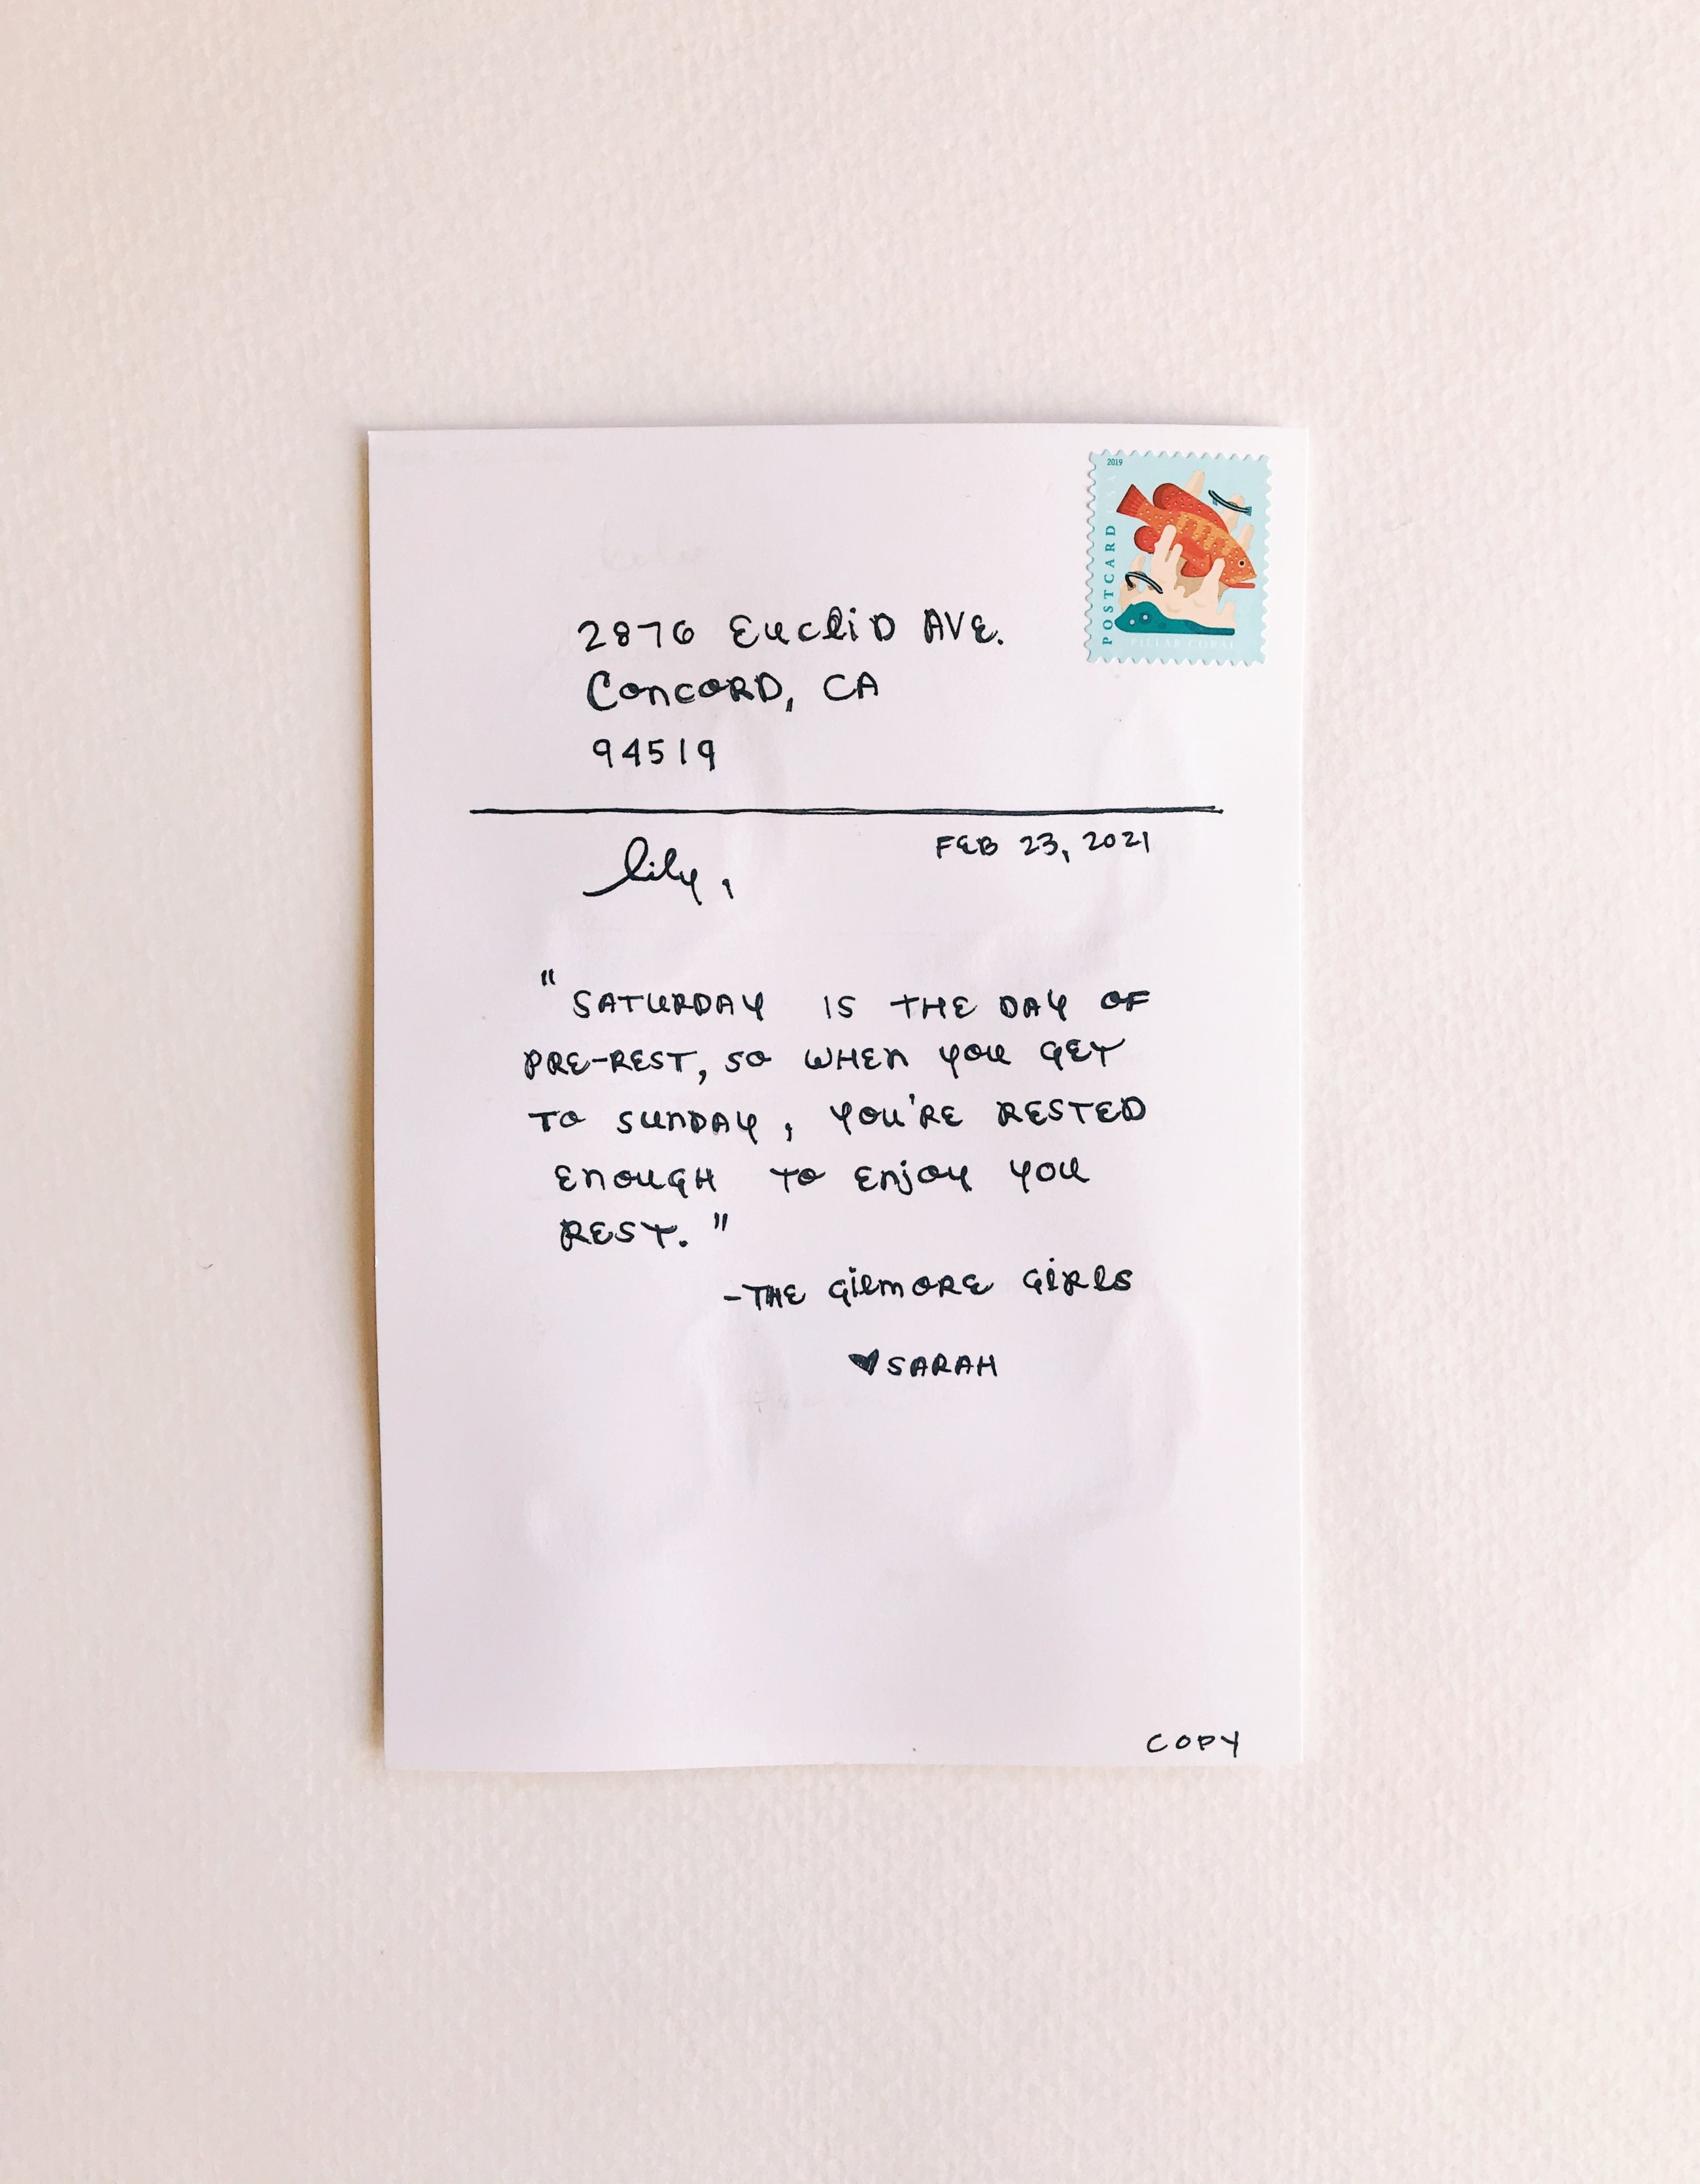 2019
POSTCARD
USA
PILLAR CORAL
2876 Euclid AVE.
Concord, CA
94519
FEB 23, 2021
lily,
"SATURDAY IS THE DAY OF
PRE-REST, SO WHEN YOU GET
TO SUNDAY, YOU'RE RESTED
ENOUGH TO ENJOY YOU
REST."
-THE GILMORE GIRLS
♥SARAH
COPY